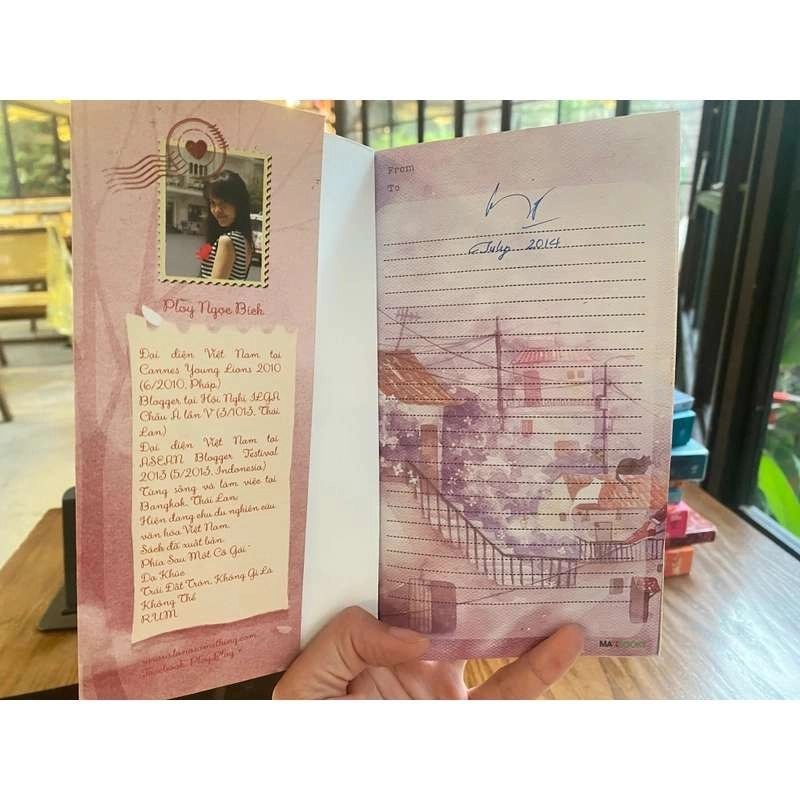 Ploy Ngọc Bích
Đại diện Việt Nam tại
Cannes Young Lions 2010
(6/2010, Pháp)
Blogger tại Hội Nghị ILGA
Châu Á lần V (3/1013, Thái
Lan)
Đại diện Việt Nam tại
ASEAN Blogger Festival
2013 (5/2013, Indonesia)
Từng sống và làm việc tại
Bangkok, Thái Lan.
Hiện đang chu du nghiên cứu
văn hóa Việt Nam.
Sách đã xuất bản:
Phía Sau Một Cô Gái
Dạ Khúc
Trái Đất Tròn, Không Gì Là
Không Thể
RUM
From
To
July 2014